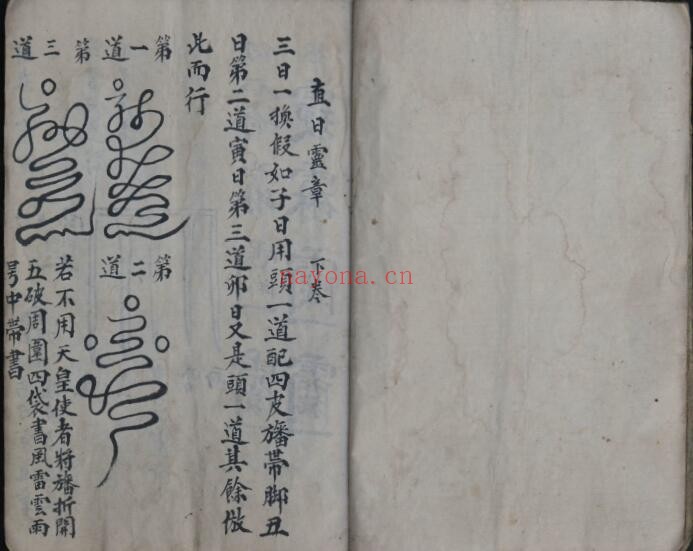 直日靈章 下卷
三日一換假如子日用頭一道配四支旛帶脚丑
日第二道寅日第三道卯日又是頭一道其餘倣
此而行
第一道
第二道
第三道
若不用天皇使者將旛折開
五破周圍四袋書風雷雲雨
号中帶書
nayona.cn